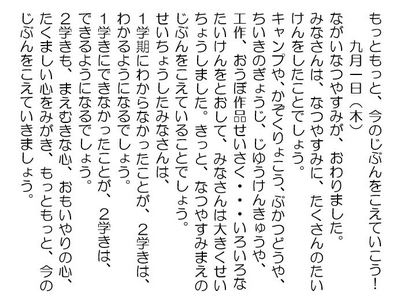 もっともっと、今のじぶんをこえていこう！
九月一日（木）
ながいなつやすみが、おわりました。
みなさんは、なつやすみに、たくさんのたい
けんをしたことでしょう。
キャンプや、かぞくりょこう、ぶかつどうや、
ちいきのぎょうじ、じゆうけんきゅうや、
工作、おうぼ作品せいさく・・・いろいろな
たいけんをとおして、みなさんは大きくせい
ちょうしました。きっと、なつやすみまえの
じぶんをこえていることでしょう。
せいちょうしたみなさんは、
１学期にわからなかったことが、２学きは、
わかるようになるでしょう。
１学きにできなかったことが、２学きは、
できるようになるでしょう。
２学きも、まえむきな心、おもいやりの心、
たくましい心をみがき、もっともっと、今の
じぶんをこえていきましょう。